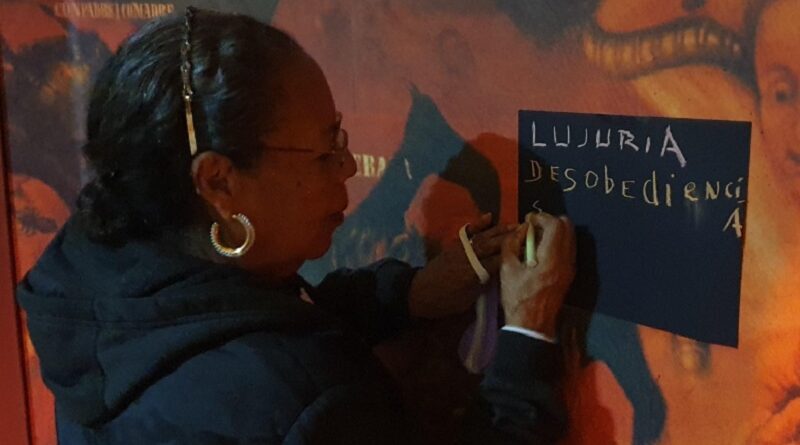 COMPADRE/COMADRE
LUJURIA
DESOBEDIENCI
A
S